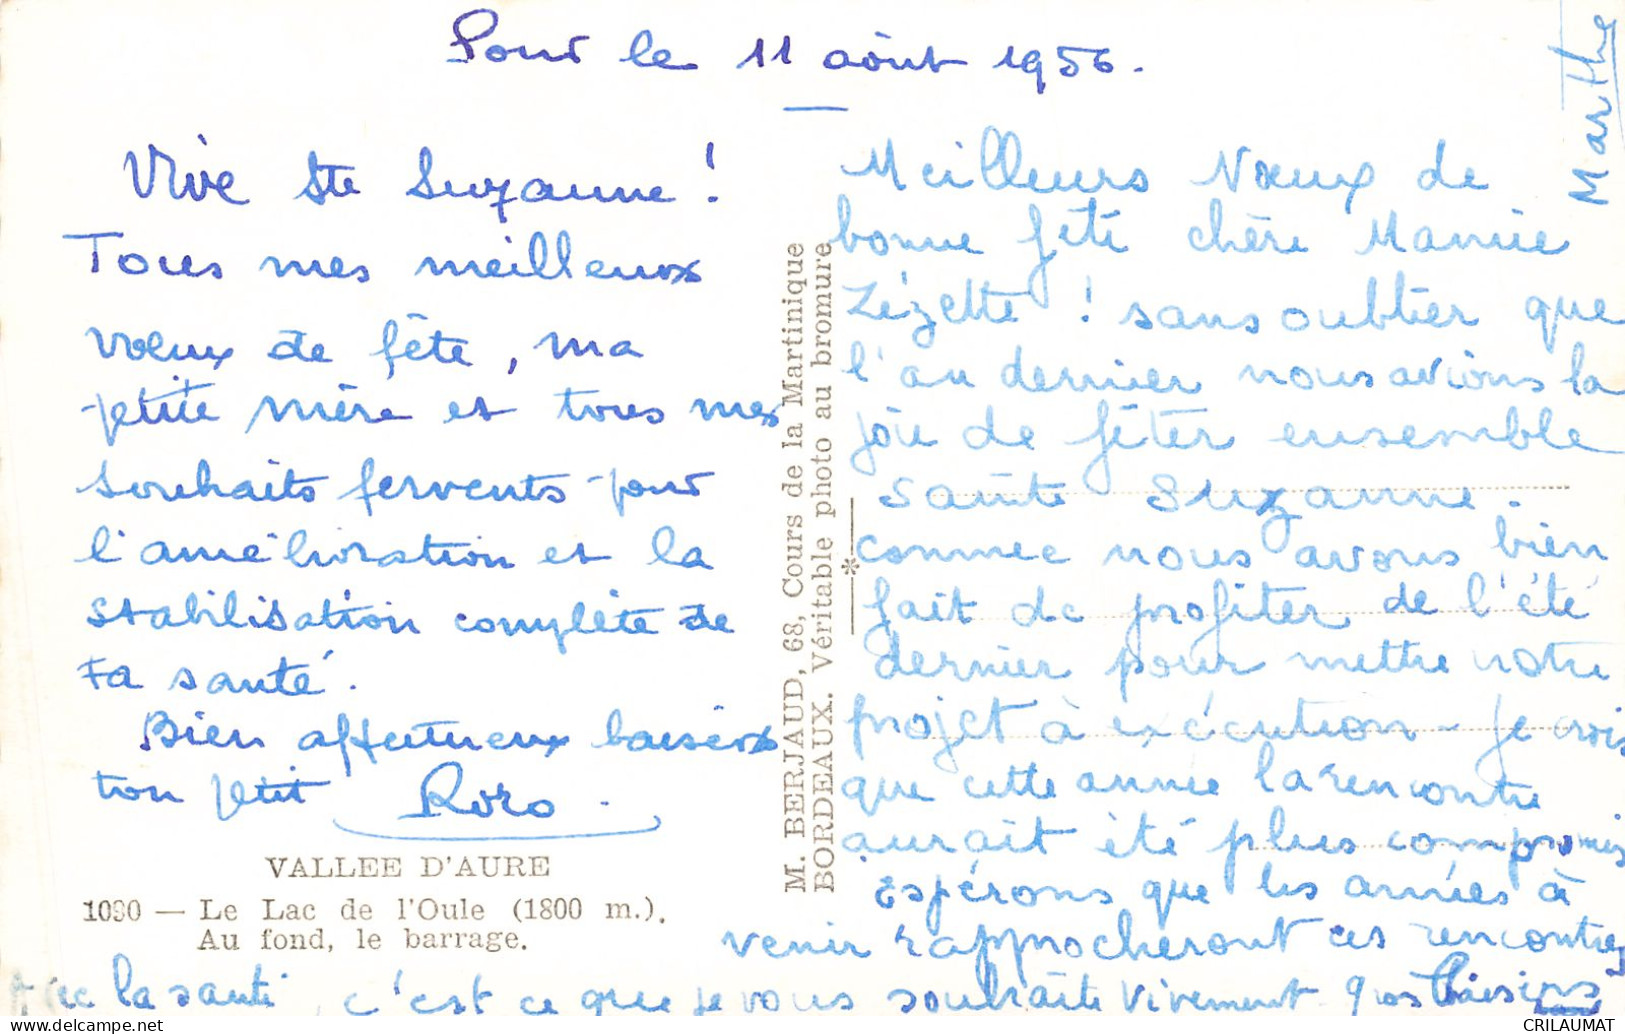 Pour le 11 août 1956.
Vive Ste Suzanne !
Tous mes meilleurs
vœux de fête, ma
petite mère et tous mes
souhaits fervents pour
l'amélioration et la
stabilisation complète de
ta santé.
Bien affectueux baisers
ton petit Roro.
VALLEE D'AURE
1080 — Le Lac de l'Oule (1800 m.).
Au fond, le barrage.
M. BERJAUD, 68, Cours de la Martinique
BORDEAUX. Véritable photo au bromure
Meilleurs Vœux de
bonne fête chère Mamie
Zézette ! sans oublier que
l'an dernier nous avions la
joie de fêter ensemble
Sainte Suzanne.
comme nous avons bien
fait de profiter de l'été
dernier pour mettre notre
projet à exécution - Je crois
que cette année la rencontre
aurait été plus compromis
Espérons que les années à
venir rapprocheront ces rencontres
Avec la santé, c'est ce que je vous souhaite vivement gros baisers
Marthe
CRILAUMAT